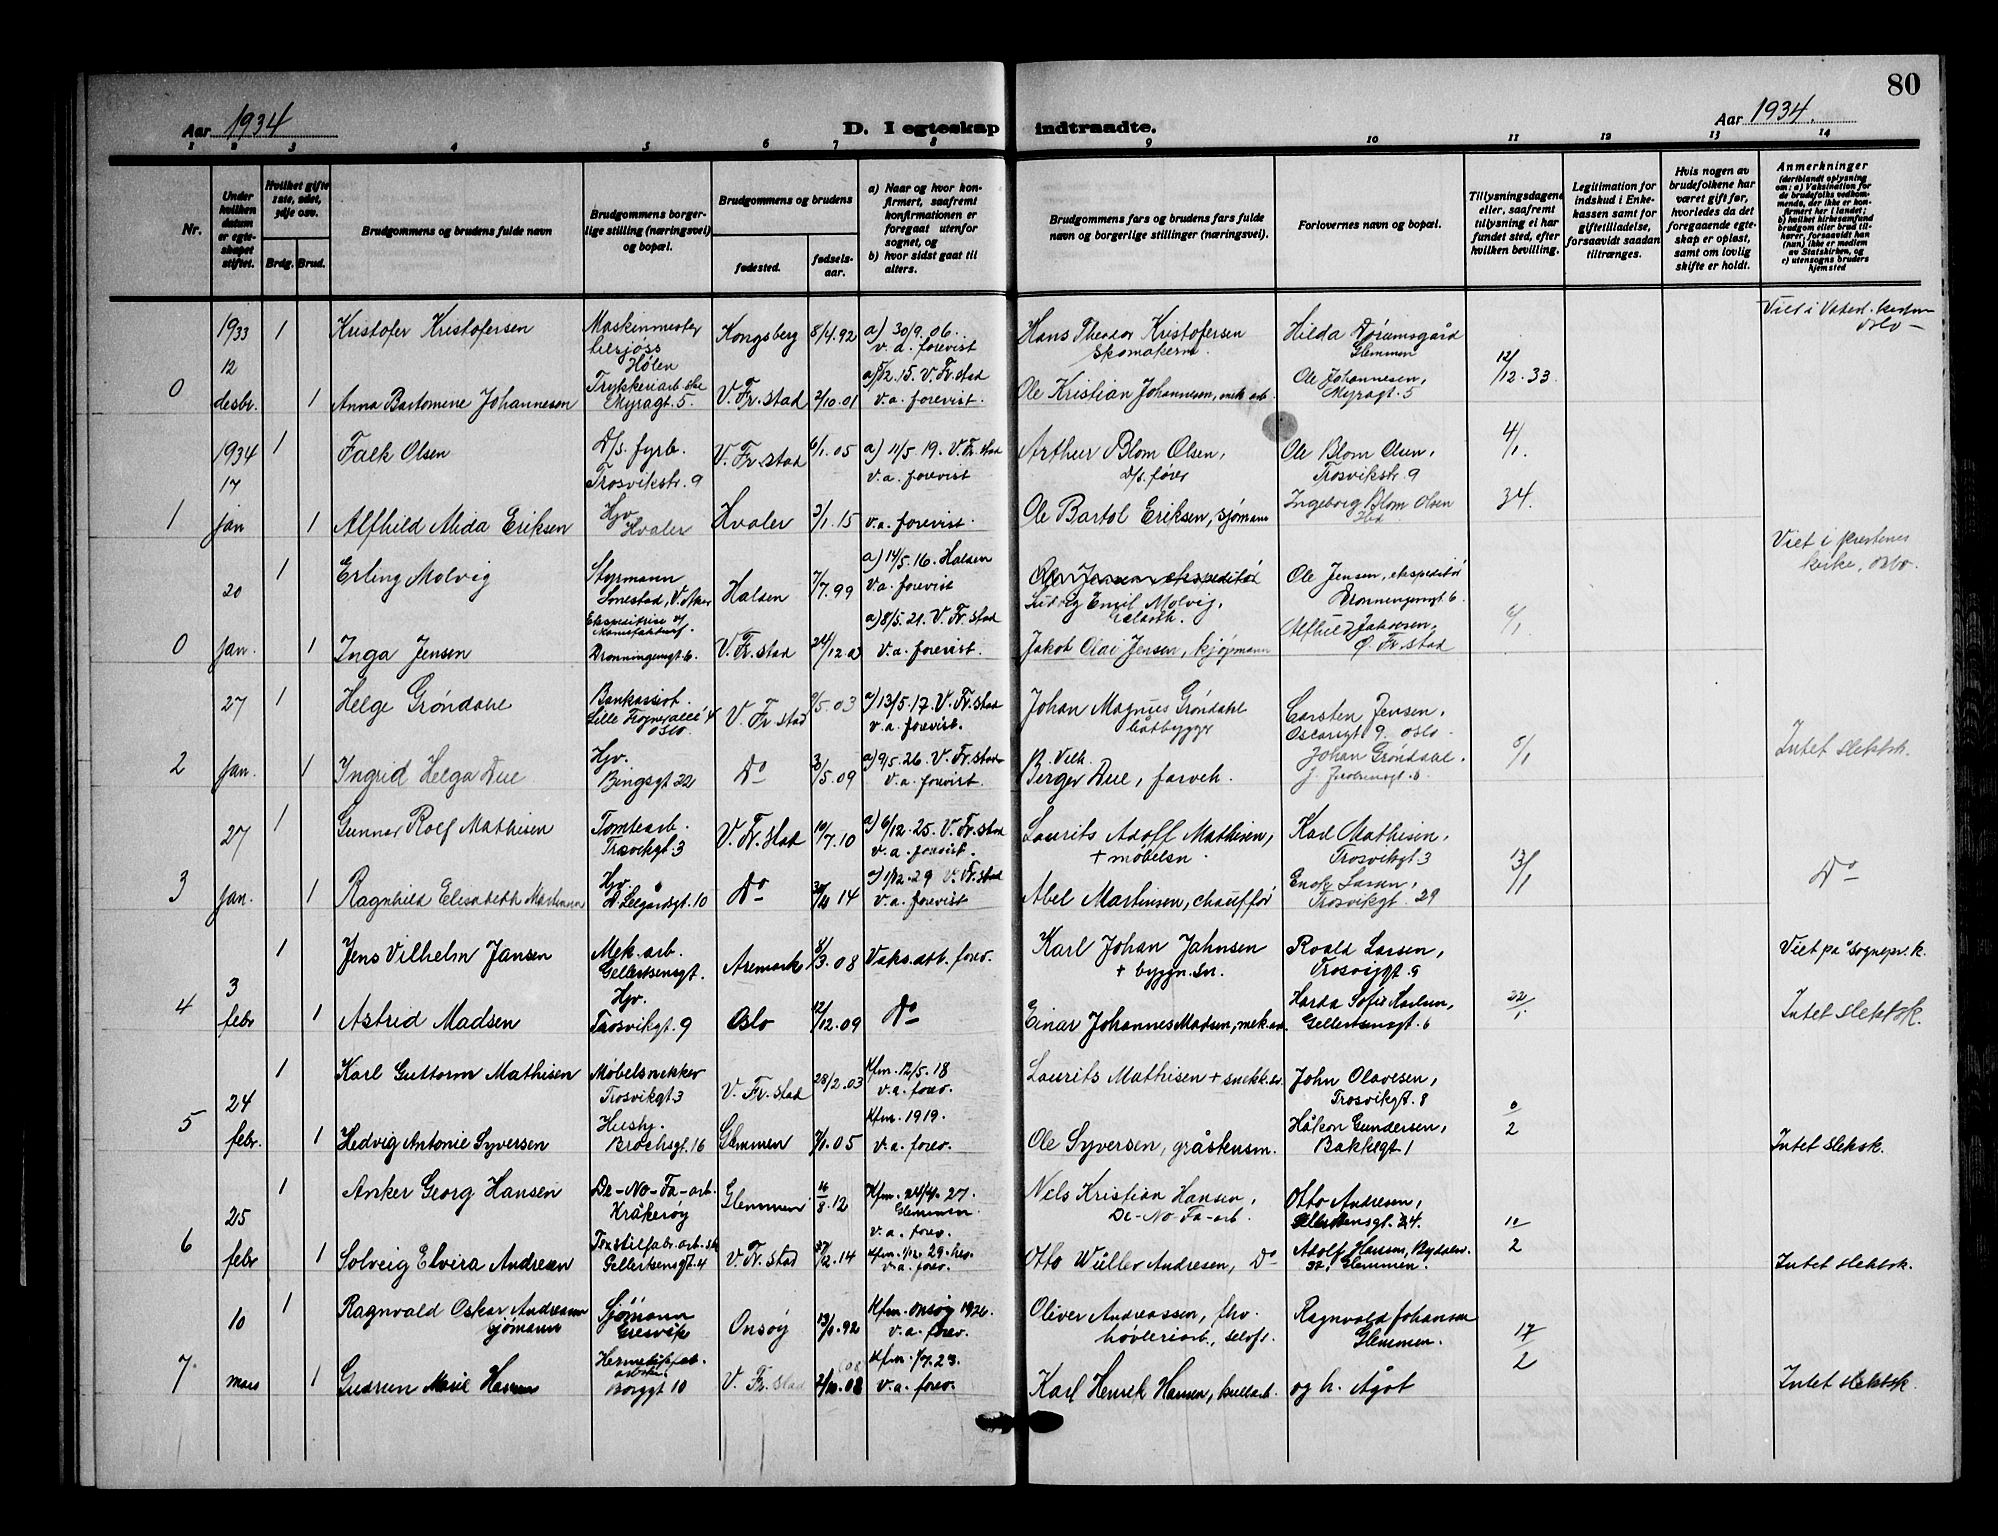 80
Aar 1934
D. I egteskap indtraadte.
Aar 1934.
1 2 3 4 5 6 7 8 9 10 11 12 13 14
Nr.
Under hvilken datum er egteskapet stiftet.
Hvilket gifte 1ste, 2det, 3dje osv.
Brdg. Brud.
Brudgommens og brudens fulde navn
Brudgommens borgerlige stilling (næringsvei) og bopæl.
Brudgommens og brudens
fødested.
fødselsaar.
a) Naar og hvor konfirmert, saafremt konfirmationen er foregaat utenfor sognet, og
b) hvor sidst gaat til alters.
Brudgommens fars og brudens fars fulde navn og borgerlige stillinger (næringsvei).
Forlovernes navn og bopæl.
Tillysningsdagene eller, saafremt tillysning ei har fundet sted, efter hvilken bevilling.
Legitimation for indskud i Enkekassen samt for giftetilladelse, forsaavidt saadan tiltrænges.
Hvis nogen av brudefolkene har været gift før, hvorledes da det foregaaende egteskap er opløst, samt om lovlig skifte er holdt.
Anmerkninger
(deriblandt oplysning om: a) Vaksination for de brudefolks vedkommende, der ikke er konfirmert her i landet; b) hvilket kirkesamfund brudgom eller brud tilhører, forsaavidt han (hun) ikke er medlem av Statskirken, og c) utensogns bruders hjemsted
0
1933 12 desbr.
1 Kristofer Kristofersen
Maskinmester tilsjøss Hølen
Kongsberg 8/4.92
a) 30/9.06. v.a. forevist
Hans Theodor Kristofersen
Skomakerm.
Hilda
Glemmen
12/12.33.
1 Anna Bartomine Johannesen
Myragt. 5
V. Fr.stad 2/10.01
15. V. Fr.stad
v.a. forevist.
Ole Kristian Johannesen, mek arb.
Ole Johannesen,
Myragt. 5
Viet i
Oslo
1
1934 17 jan
1 Falk Olsen
D/s. fyrb.
Trosvikstr. 9
V. Fr.stad 6/1.05
a) 11/5 19. V. Fr.stad
v.a. forevist
Arthur Blom Olsen,
D/s. fører
Ole Blom Olsen,
Trosvikstr. 9
4/1. 34.
1 Alfhild Mida Eriksen
Hjv. Hvaler
Hvaler 3/1.15
v.a. forevist.
Ole Bartol Eriksen, sjømann
Ingeborg Blom Olsen
Ibd
0
20 jan.
1 Erling Molvig
Styrmann
V. Aker
Halsen 7/7.99
a) 14/5.16. Halsen
v.a. forevist
Ole Jensen ekspeditør
Ludvig Emil Molvig,
Ole Jensen, ekspeditør
Dronningensgt 6.
6/1
1 Inga Jensen
Dronningensgt. 6.
V. Fr.stad 24/12.02
a) 8/5.21. V. Fr.stad
v.a. forevist.
Jakob Olai Jensen, kjøpmann
Alfhild
Ø. Fr.stad
Viet i prestenes
kirke, Oslo.
2
27 jan.
1 Helge Grøndahl
Bankassist.
Lille Frogneralle 4 Oslo
V. Fr.stad 9/5.03
a) 13/5.17. V. Fr.stad
v.a. forevist.
Johan Magnus Grøndahl
båtbygger
Carsten Jensen,
Oscarsgt 9. Oslo.
5/1
1 Ingrid Helga Due
Hjv. Bingsgt 22
Do 3/5.09
a) 9/5.26. V. Fr.stad
v.a. forevist.
B. Vilh.
Birger Due, farveh.
Johan Grøndahl.
Intet slektsk.
3
27 jan.
1 Gunnar Rolf Mathisen
Tomtearb.
Trosvikgt. 3
V. Fr.stad 10/7.10
a) 6/12.25. V. Fr.stad
v.a. forevist.
Laurits Adolf Mathisen,
+ møbelsn.
Karl Mathisen,
Trosvikgt. 3
13/1
1 Ragnhild Elisabeth Martinsen
Hjv. 10
Do 14
a) 1/12.29 V. Fr.stad
v.a. forevist
Abel Martinsen, chauffør
Enok Larsen,
Trosvikgt. 29
Do
4
3 febr
1 Jens Vilhelm Jansen
Mek. arb.
Gellertsensgt.
Aremark 8/3.08
Vaks.att. forev.
Karl Johan Jahnsen
+ byggn.sn.
Roald Larsen,
Trosvigt. 9
22/1
1 Astrid Madsen
Hjv. Trosvikgt. 9
Oslo 12/12.09
Do
Einar Johannes Madsen, mek.arb.
Harda Sofie Karlsen,
Gellertsensgt. 6
Viet på sognepr.k.
Intet slektsk.
5
24 febr.
1 Karl Guttorm Mathisen
Møbelsnekker
Trosvikgt. 3
V. Fr.stad 28/2.03
Kfm. 12/5.18
v.a. forev.
Laurits Mathisen + snekk.sv.
John Olavesen,
Trosvikgt. 8
1 Hedvig Antonie Syversen
Hushj.
Brochsgt. 16
Glemmen 05
Kfm. 1919.
v.a. forev.
Ole Syversen, gråsteinsm.
Håkon Gundersen,
Bakkegt. 1
Intet slektsk.
6
25 febr
1 Anker Georg Hansen
De-No-Fa-arb.
Kråkerøy
Glemmen 16/8.12
Kfm. 24/4.27. Glemmen
v.a. forev.
Nils Kristian Hansen,
De-No-Fa-arb.
Otto Andresen,
Gellertsensgt. 24.
10/2
1 Solveig Elvira Andresen
Gellertsensgt. 4
V. Fr.stad 14
Kfm. 1/12 29. her.
v.a. forev.
Otto Wüller Andresen, Do
Adolf Hansen,
32, Glemmen.
Intet slektsk.
7.
10 mars
1 Ragnvald Oskar Andreassen
sjømann
Sjømann
Gresvik
Onsøy 92
Kfm. Onsøy 1926.
v.a. forev.
Oliver Andreassen, fhv.
høvleriarb.,
Ragnvald Johansen
Glemmen.
17/2
1 Gudrun Marie Hansen
Borggt 10
V. Fr.stad
Kfm. 1/7.23.
v.a. forev.
Karl Henrik Hansen,
og h. Ågot
Intet slektsk.